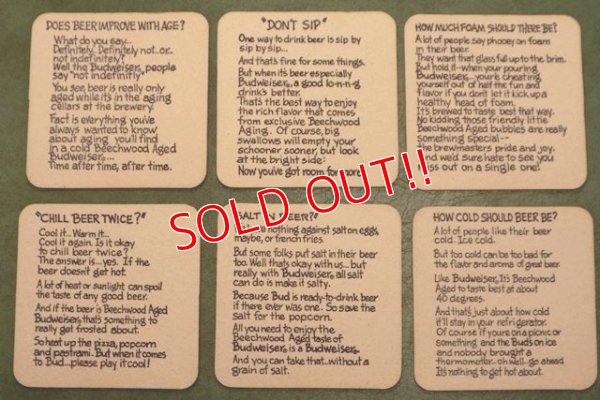 DOES BEER IMPROVE WITH AGE?
What do you say...
Definitely. Definitely not..or..
not indefinitely?
Well the Budweiser® people
say "not indefinitly"
You see, beer is really only
aged while it's in the aging
cellars at the brewery.
Fact is everything you've
always wanted to know
about aging you'll find
in a cold Beechwood Aged
Budweiser®....
Time after time, after time.
"DON'T SIP"
One way to drink beer is sip by
sip by sip...
And that's fine for some things.
But when it's beer especially
Budweiser®, a good lo-n-n-g
drink's better.
That's the best way to enjoy
the rich flavor that comes
from exclusive Beechwood
Aging. Of course, big
swallows will empty your
schooner sooner, but look
at the bright side:
Now you've got room for more!
HOW MUCH FOAM SHOULD THERE BE?
A lot of people say phooey on foam
in their beer.
They want that glass full up to the brim.
But hold it--when your pouring
Budweiser®...you're cheating
yourself out of half the fun and
flavor if you don't let it kick up a
healthy head of foam.
It's brewed to taste best that way.
No kidding those friendly little
Beechwood Aged bubbles are really
something special--
the brewmasters pride and joy.
And we'd sure hate to see you
out on a single one!
SOLD OUT!!
"CHILL BEER TWICE?"
Cool it.. Warm it...
Cool it again. Is it okay
to chill beer twice?
The answer is...yes. If the
beer doesn't get hot.
A lot of heat or sunlight can spoil
the taste of any good beer.
And if the beer is Beechwood Aged
Budweiser® that's something to
really get frosted about.
So heat up the pizza, popcorn
and pastrami. But when it comes
to Bud®...please play it cool!
"SALT IN BEER?"
nothing against salt on eggs,
maybe, or french fries.
But some folks put salt in their beer
too. Well that's okay with us...but
really with Budweiser®, all salt
can do is make it salty.
Because Bud is ready-to-drink beer
if there ever was one. So save the
salt for the popcorn.
All you need to enjoy the
Beechwood Aged taste of
Budweiser® is a Budweiser®.
And you can take that...without a
grain of salt.
HOW COLD SHOULD BEER BE?
A lot of people like their beer
cold. Ice cold.
But too cold can be too bad for
the flavor and aroma of great beer.
Like Budweiser®. It's Beechwood
Aged to taste best at about
40 degrees.
And that's just about how cold
it'll stay in your refrigerator.
Of course if you're on a picnic or
something and the Buds on ice
and nobody brought a
thermometer...oh well..go ahead
It's nothing to get hot about.